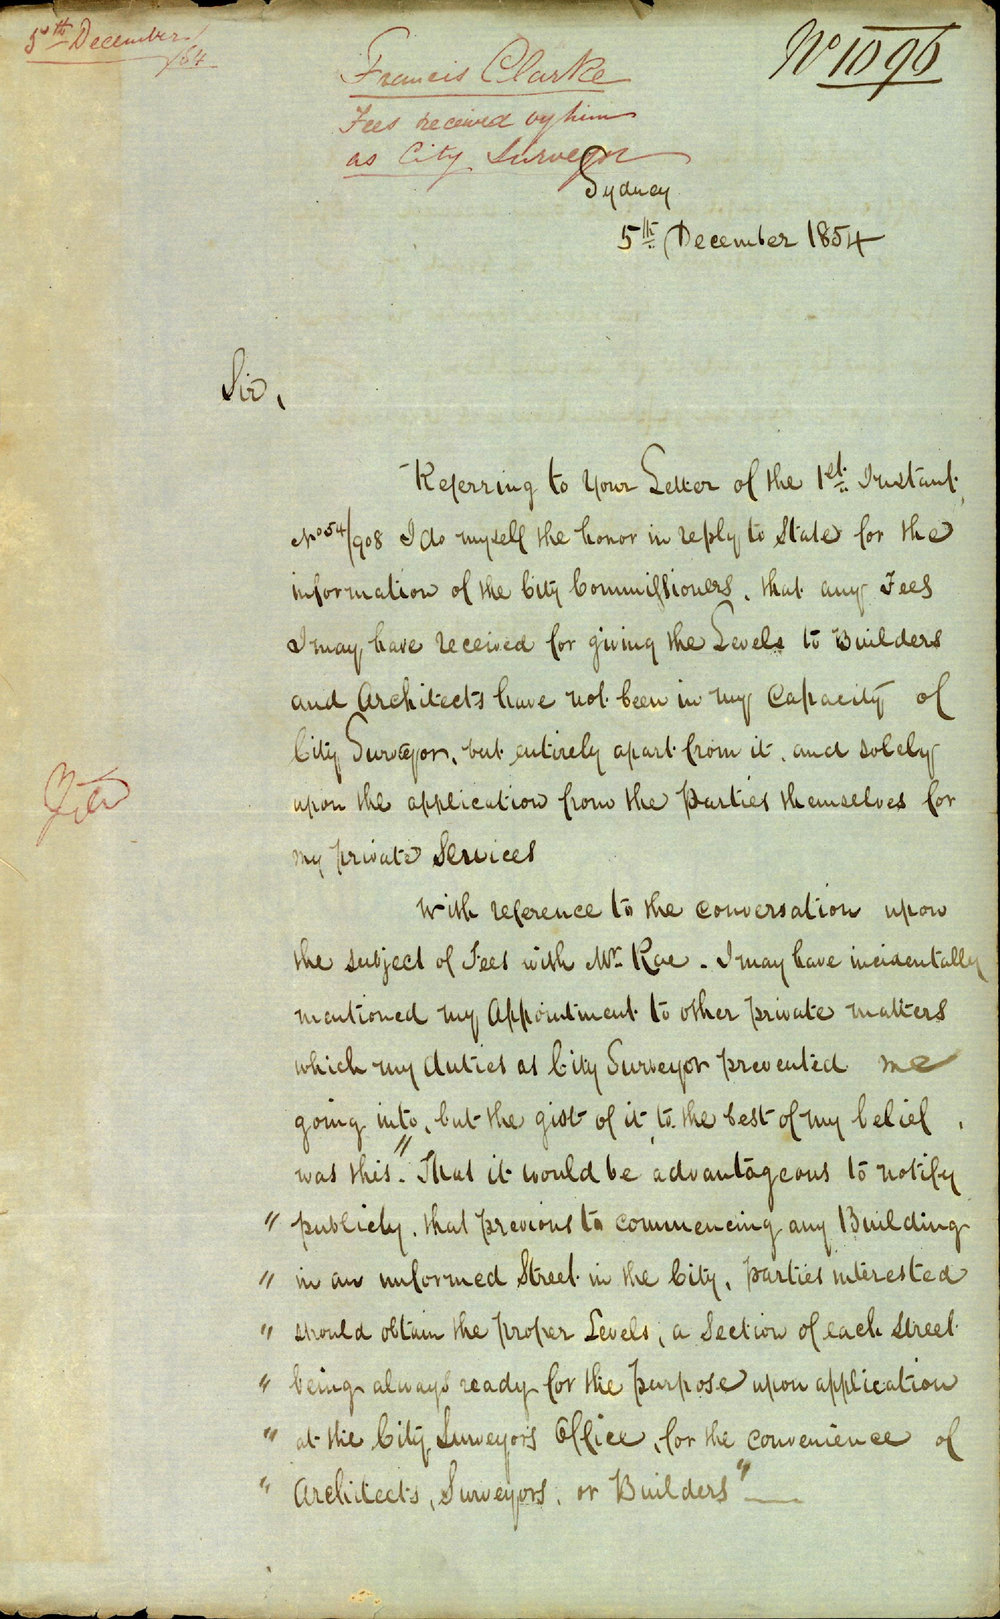 5th December /54
No 1096
Francis Clarke
Fees received by him
as City Surveyor
Sydney
5th December 1854
Sir,
Referring to Your Letter of the 1st Instant,
No 54/908 I do myself the honor in reply to State for the
information of the City Commissioners, that any Fees
I may have received for giving the Levels to Builders
and Architects have not been in my Capacity of
City Surveyor, but entirely apart from it, and solely
upon the application from the Parties themselves for
my private Services
With reference to the conversation upon
the subject of Fees with Mr Rae. I may have incidentally
mentioned my Appointment to other private matters
which my duties as City Surveyor prevented me
going into, but the gist of it, to the best of my belief,
was this. "That it would be advantageous to notify
" publicly, that previous to commencing any Building
" in an unformed Street in the City, parties interested
" should obtain the proper Levels, a Section of each Street
" being always ready for the purpose upon application
" at the City Surveyors Office, for the convenience of
" Architects, Surveyors, or Builders"